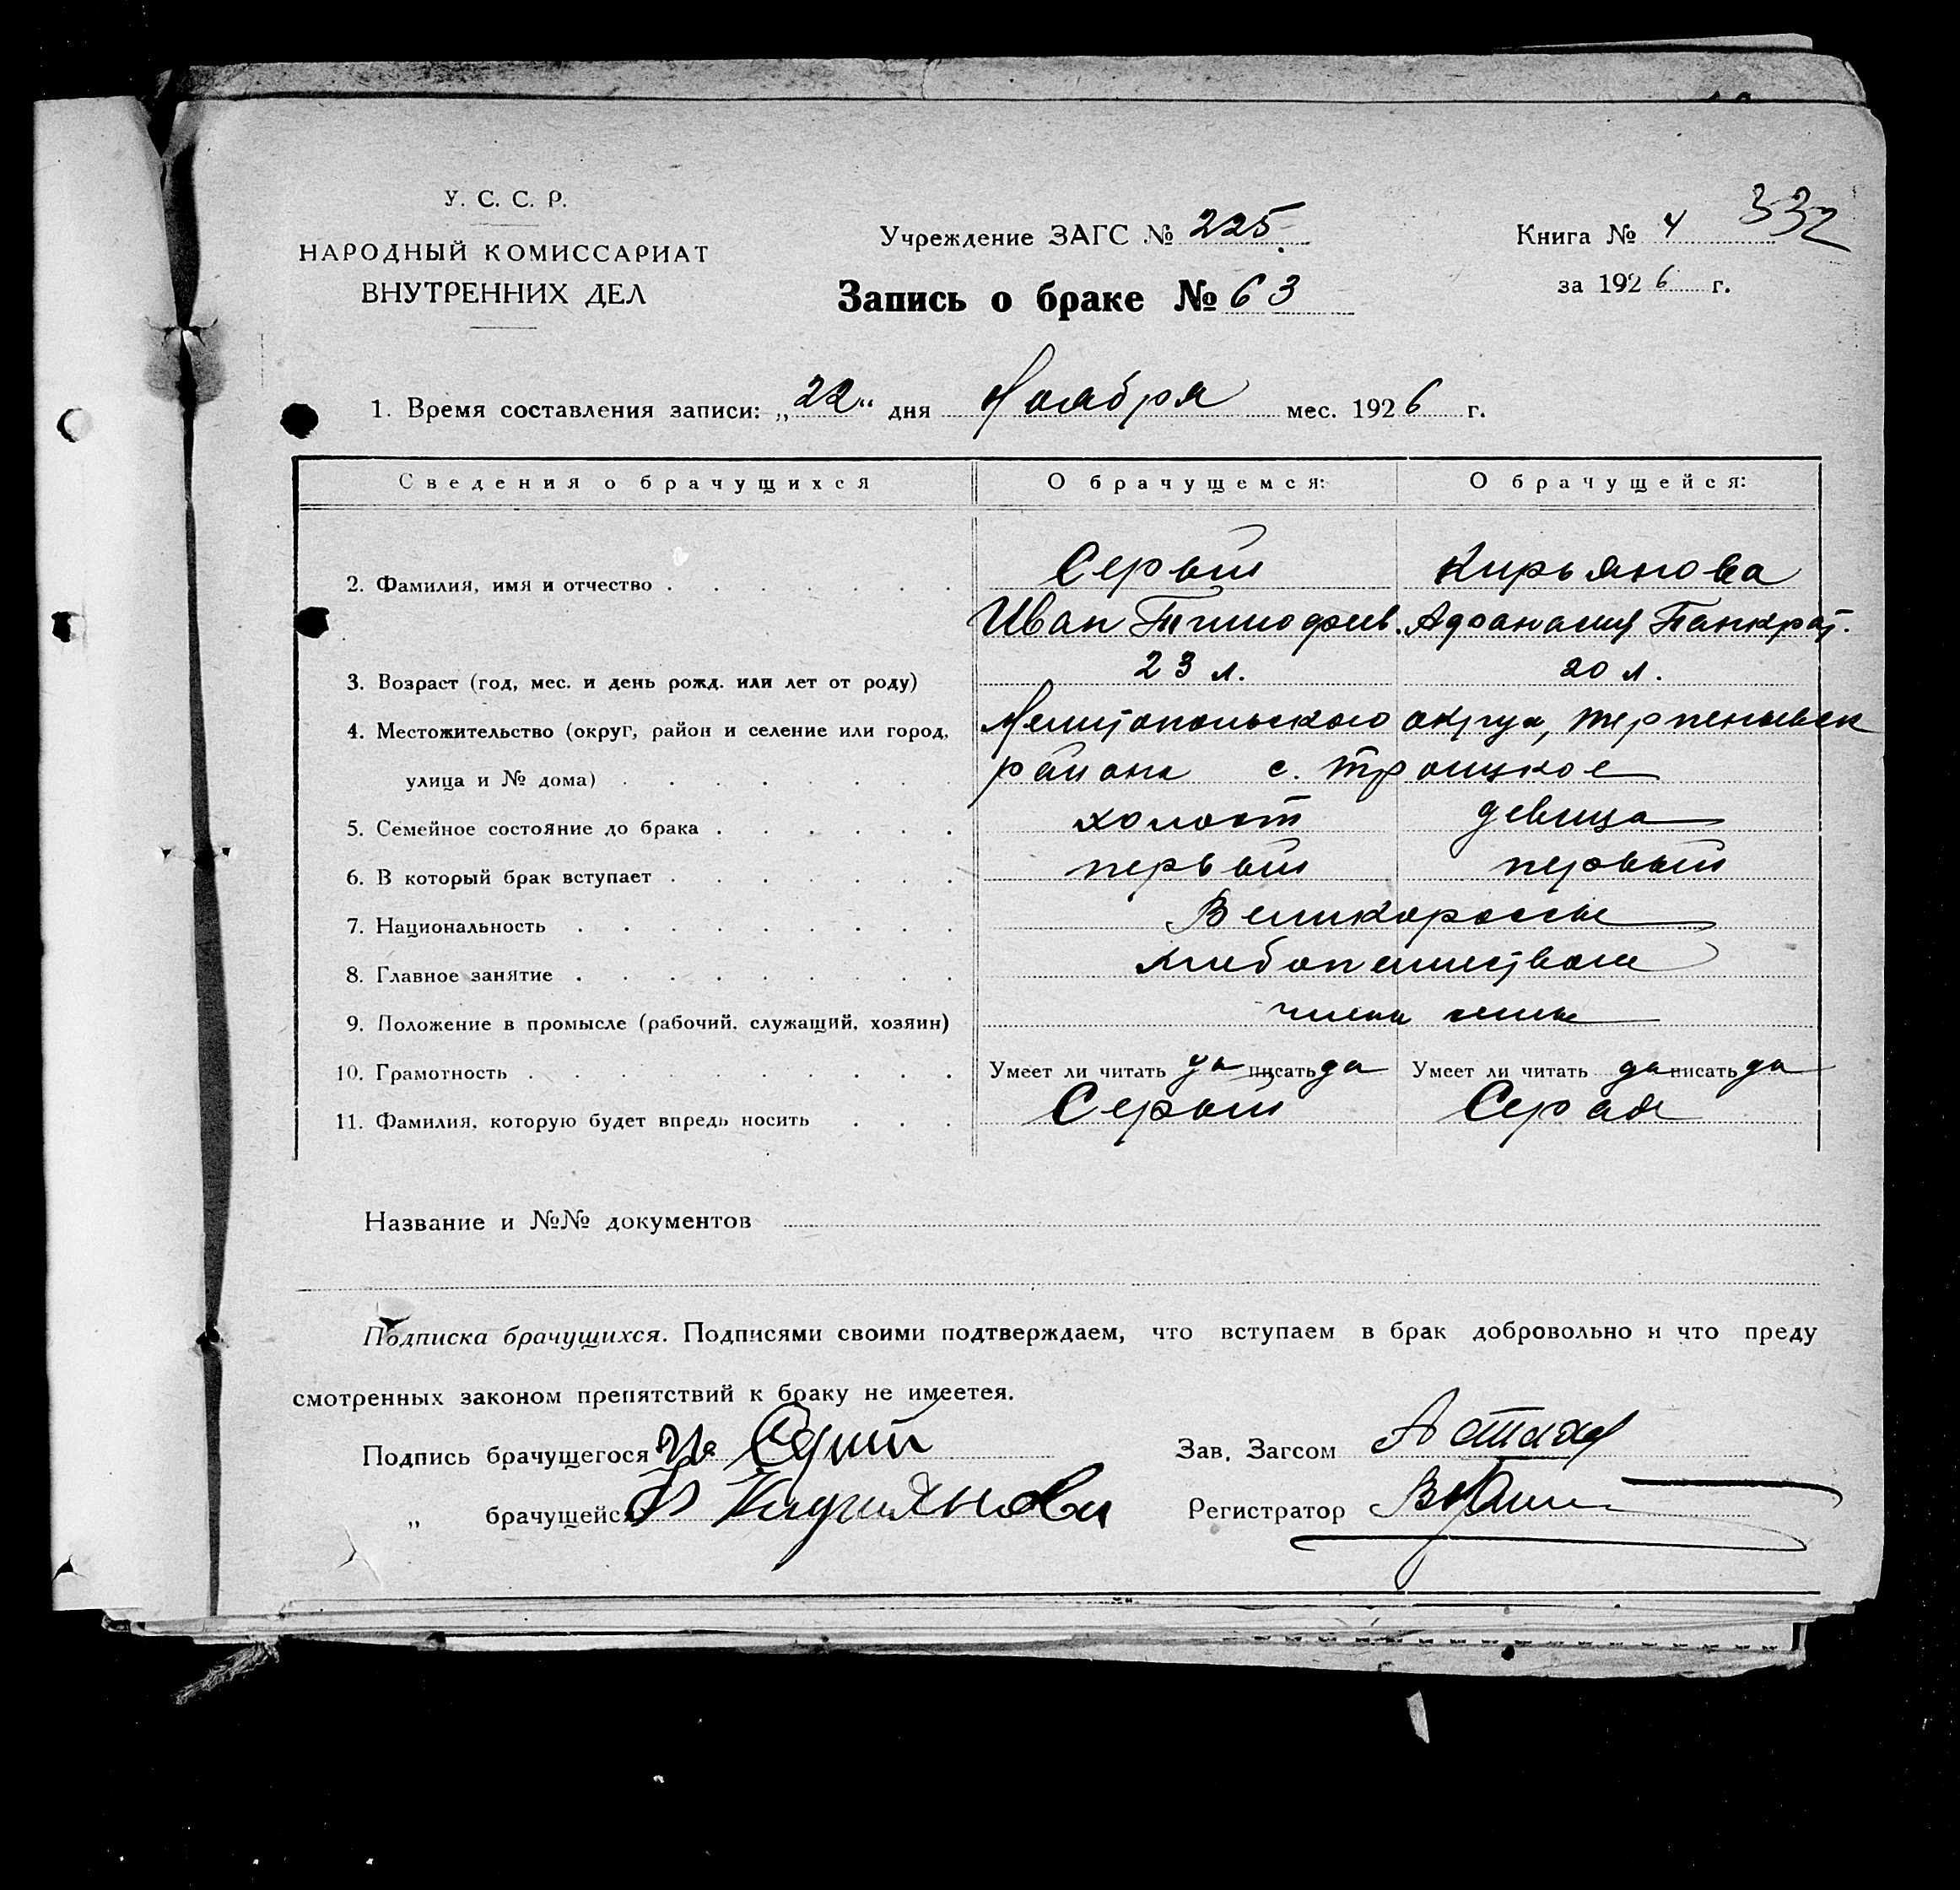 332
У. С. С. Р.
НАРОДНЫЙ КОМИССАРИАТ
ВНУТРЕННИХ ДЕЛ
Учреждение ЗАГС № 225.
Запись о браке № 63
Книга № 4
за 1926 г.
1. Время составления записи: „22“ дня Ноября мес. 1926 г.
Сведения о брачущихся О брачущемся: О брачущейся:
2. Фамилия, имя и отчество Серый Кирьянова
Иван Тимофеев. Афанасия Панкрат.
3. Возраст (год, мес. и день рожд. или лет от роду) 23 л. 20 л.
4. Местожительство (округ, район и селение или город, Мелитопольского округа, Терпеньевск
улица и № дома) района с. Троицкое
5. Семейное состояние до брака холост девица
6. В который брак вступает первый первый
7. Национальность Великороссы
8. Главное занятие хлебопашеством
9. Положение в промысле (рабочий, служащий, хозяин) члены семьи
10. Грамотность Умеет ли читать да писать да Умеет ли читать да писать да
11. Фамилия, которую будет впредь носить Серый Серая
Название и №№ документов
Подписка брачущихся. Подписями своими подтверждаем, что вступаем в брак добровольно и что преду
смотренных законом препятствий к браку не имеетея.
Подпись брачущегося Зав. Загсом
„ брачущейся Регистратор